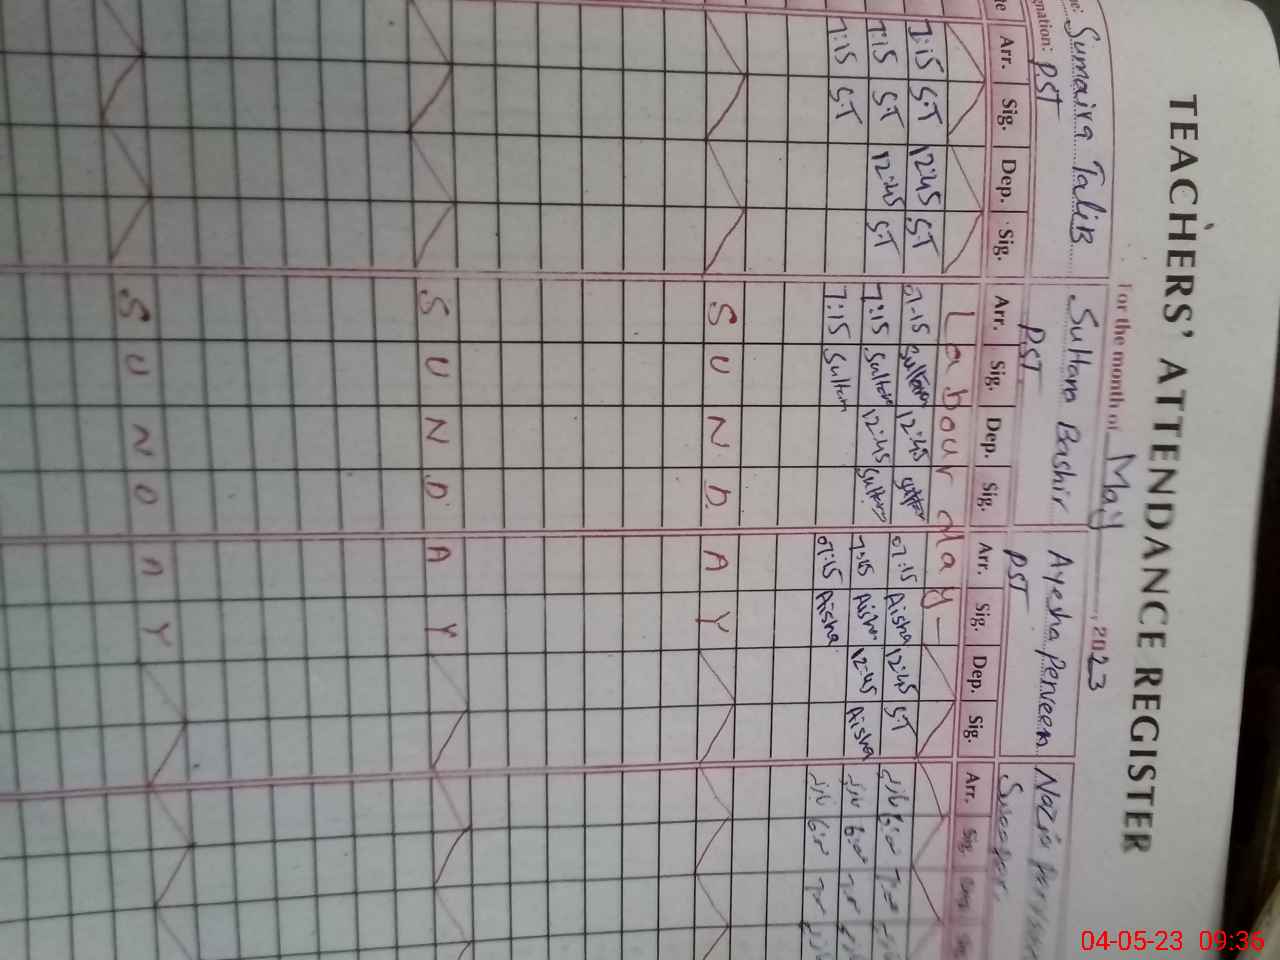 TEACHERS' ATTENDANCE REGISTER
For the month of May, 2023
Sumaira TaliB Sultana Bashir Ayesha Perveen Nazia
gnation: PST PST PST Sweeper
Arr. Sig. Dep. Sig. Arr. Sig. Dep. Sig. Arr. Sig. Dep. Sig. Arr. Sig.
Labour day-
7:15 S.T 12:45 S.T 07-15 Sultana 12:45 07:15 Aisha 12:45 S.T
7:15 S.T 12:45 S.T 7:15 Sultana 12:45 Sultana 7:15 Aisha 12:45 Aisha
7:15 S.T 7:15 Sultana 07:15 Aisha
S U N D A Y
S U N D A Y
S U N D A Y
04-05-23 09:36